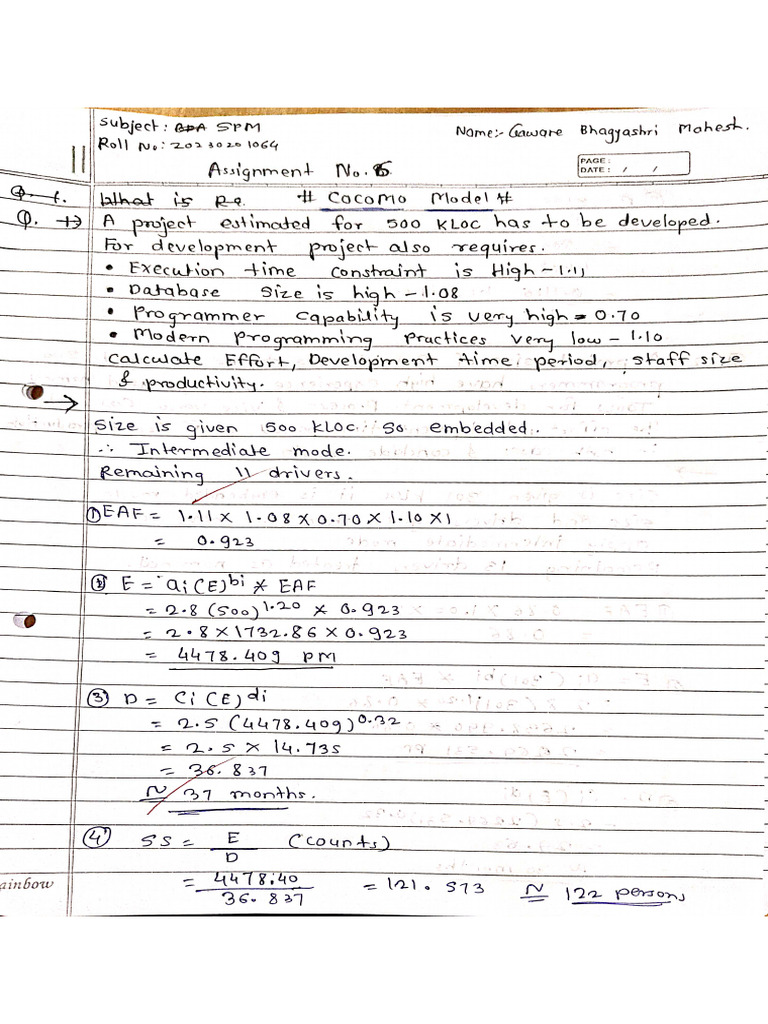 Subject: BDA SPM
Name:- Gaware Bhagyashri Mahesh.
Roll No: 20230201064
Assignment No. 6
PAGE:
DATE: / /
Q. 1. What is Re. # COCOMO Model #
Q. → A project estimated for 500 KLOC has to be developed.
For development project also requires.
• Execution time constraint is High – 1.11
• Database size is high – 1.08
• Programmer capability is very high = 0.70
• Modern programming practices very low – 1.10
Calculate Effort, Development time period, staff size
& productivity.
→
Size is given 500 KLOC. So embedded.
∴ Intermediate mode.
Remaining 11 drivers.
① EAF = 1.11 × 1.08 × 0.70 × 1.10 × 1
= 0.923
② E = ai (E)^bi * EAF
= 2.8 (500)^1.20 * 0.923
= 2.8 × 1732.86 × 0.923
= 4478.409 PM
③ D = Ci (E)^di
= 2.5 (4478.409)^0.32
= 2.5 × 14.735
= 36.837
≅ 37 months.
④ SS = E / D (counts)
= 4478.40 / 36.837 = 121.573 ≅ 122 persons
ainbow